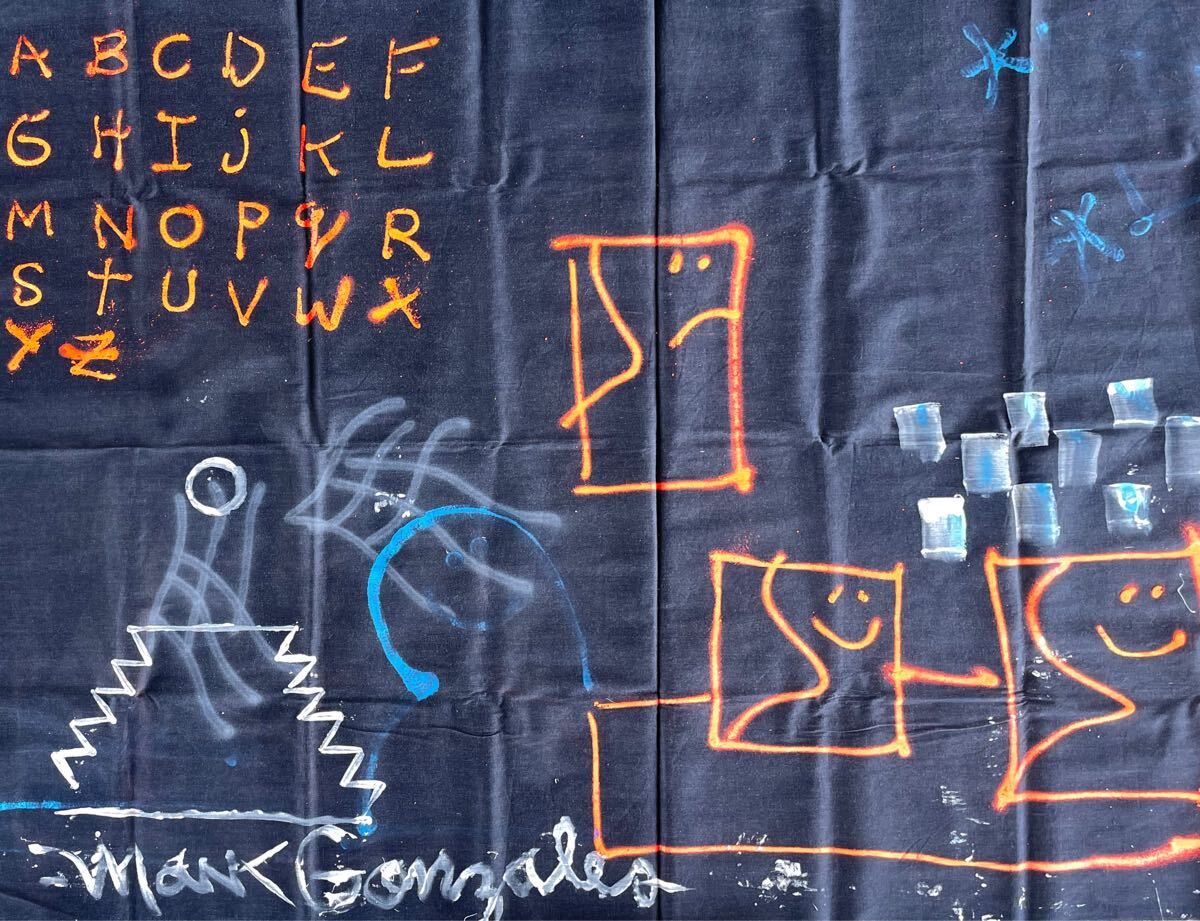 A B C D E F
G H I j K L
M N O P q R
S t U V W X
Y Z
Mark Gonzales